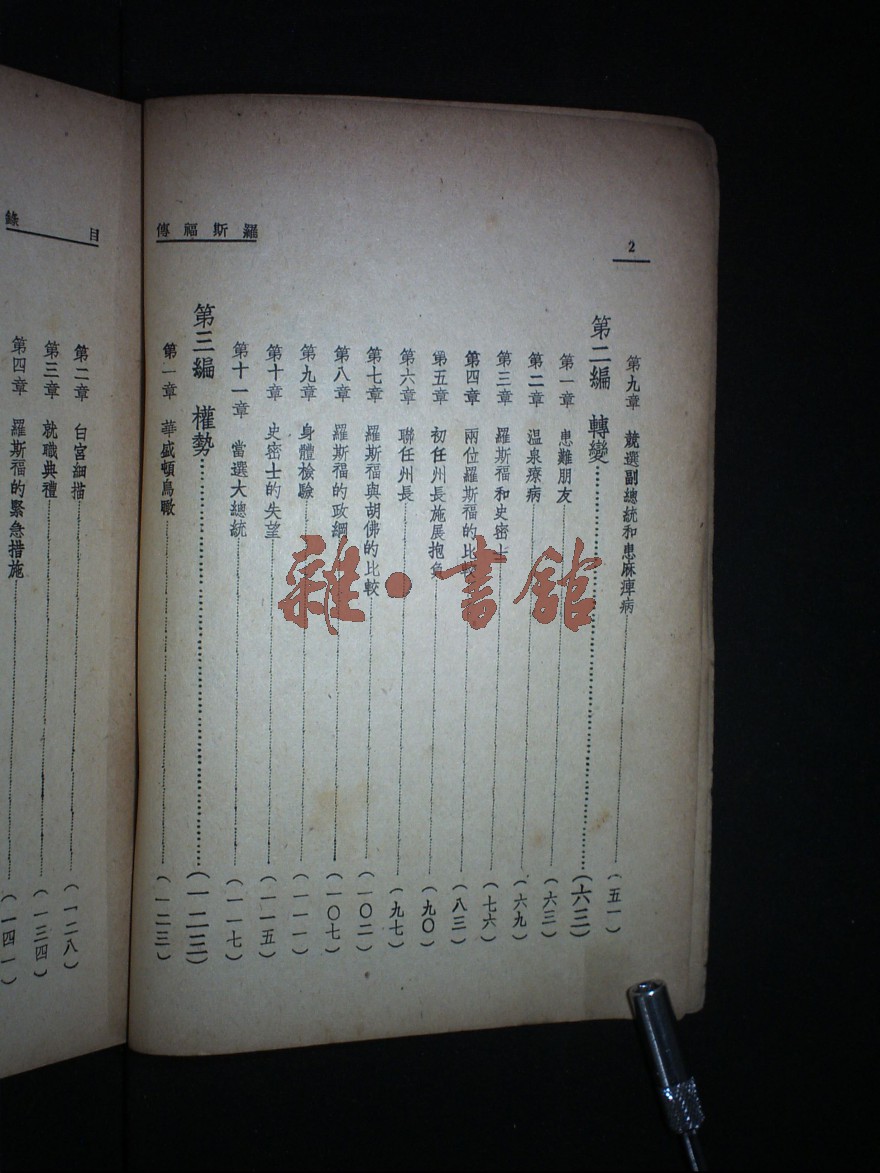 羅斯福傳
2
第九章 競選副總統和患麻痺病……(五一)
第二編 轉變……(六三)
第一章 患難朋友……(六三)
第二章 溫泉療病……(六九)
第三章 羅斯福和史密士……(七六)
第四章 兩位羅斯福的比較……(八三)
第五章 初任州長施展抱負……(九〇)
第六章 聯任州長……(九七)
第七章 羅斯福與胡佛的比較……(一〇二)
第八章 羅斯福的政綱……(一〇七)
第九章 身體檢驗……(一一一)
第十章 史密士的失望……(一一五)
第十一章 當選大總統……(一一七)
第三編 權勢……(一二三)
第一章 華盛頓鳥瞰……(一二三)
目錄
第二章 白宮細描……(一二八)
第三章 就職典禮……(一三四)
第四章 羅斯福的緊急措施……(一四一)
雜·書館